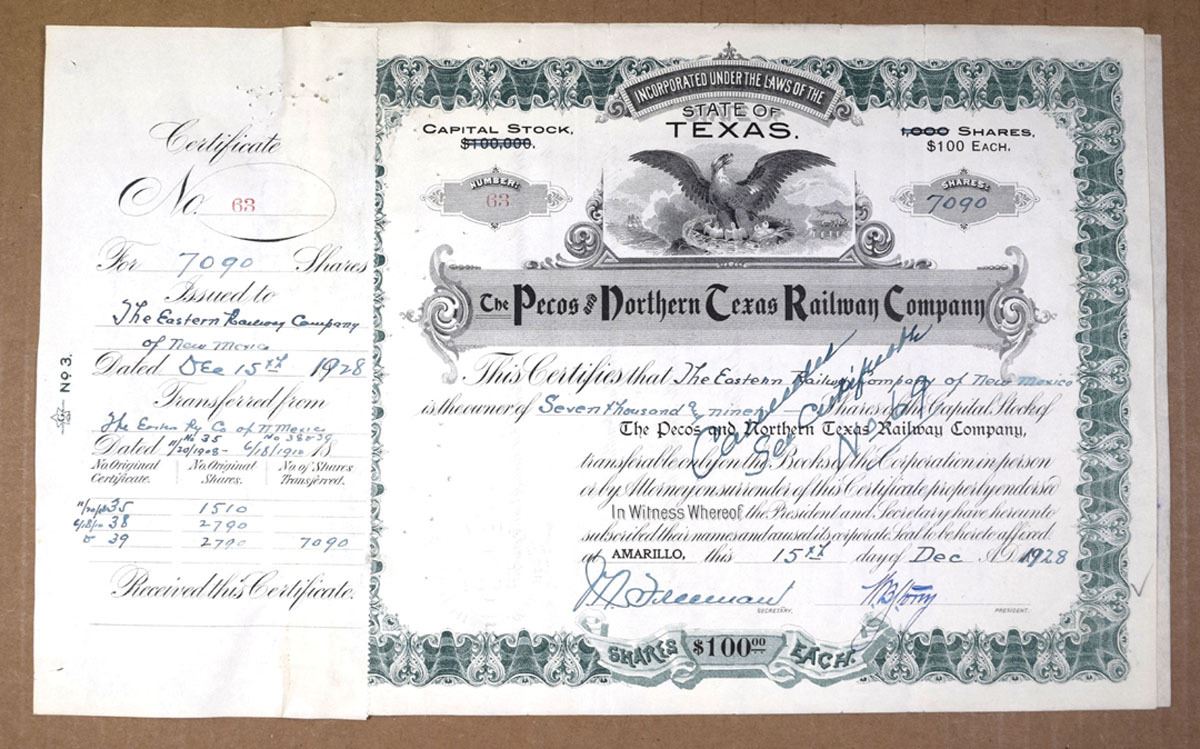 Certificate
No. 63
For 7090 Shares
Issued to
The Eastern Railway Company
of New Mexico
Dated Dec 15th 1928
Transferred from
The Eastern Ry Co of N Mexico
No 35 No 38 & 39
Dated 11/20/1908 - 6/18/1910
No. Original Certificate. No. Original Shares. No of Shares Transferred.
35 1510
6/18/10 38 2790
39 2790 7090
Received this Certificate.
No. 3.
INCORPORATED UNDER THE LAWS OF THE
STATE OF
TEXAS.
CAPITAL STOCK,
$100,000.
1,000 SHARES,
$100 EACH.
NUMBER:
63
SHARES:
7090
The Pecos and Northern Texas Railway Company
This Certifies that The Eastern Railway Company of New Mexico
is the owner of Seven thousand & ninety Shares of the Capital Stock of
The Pecos and Northern Texas Railway Company,
transferable only on the Books of the Corporation in person
or by Attorney on surrender of this Certificate properly endorsed
In Witness Whereof, the President and Secretary have hereunto
subscribed their names and caused its corporate Seal to be hereto affixed.
at AMARILLO, this 15th day of Dec A.D. 1928
Cancelled
See Certificate
No 69
Freeman
SECRETARY.
PRESIDENT.
SHARES $100.00 EACH.